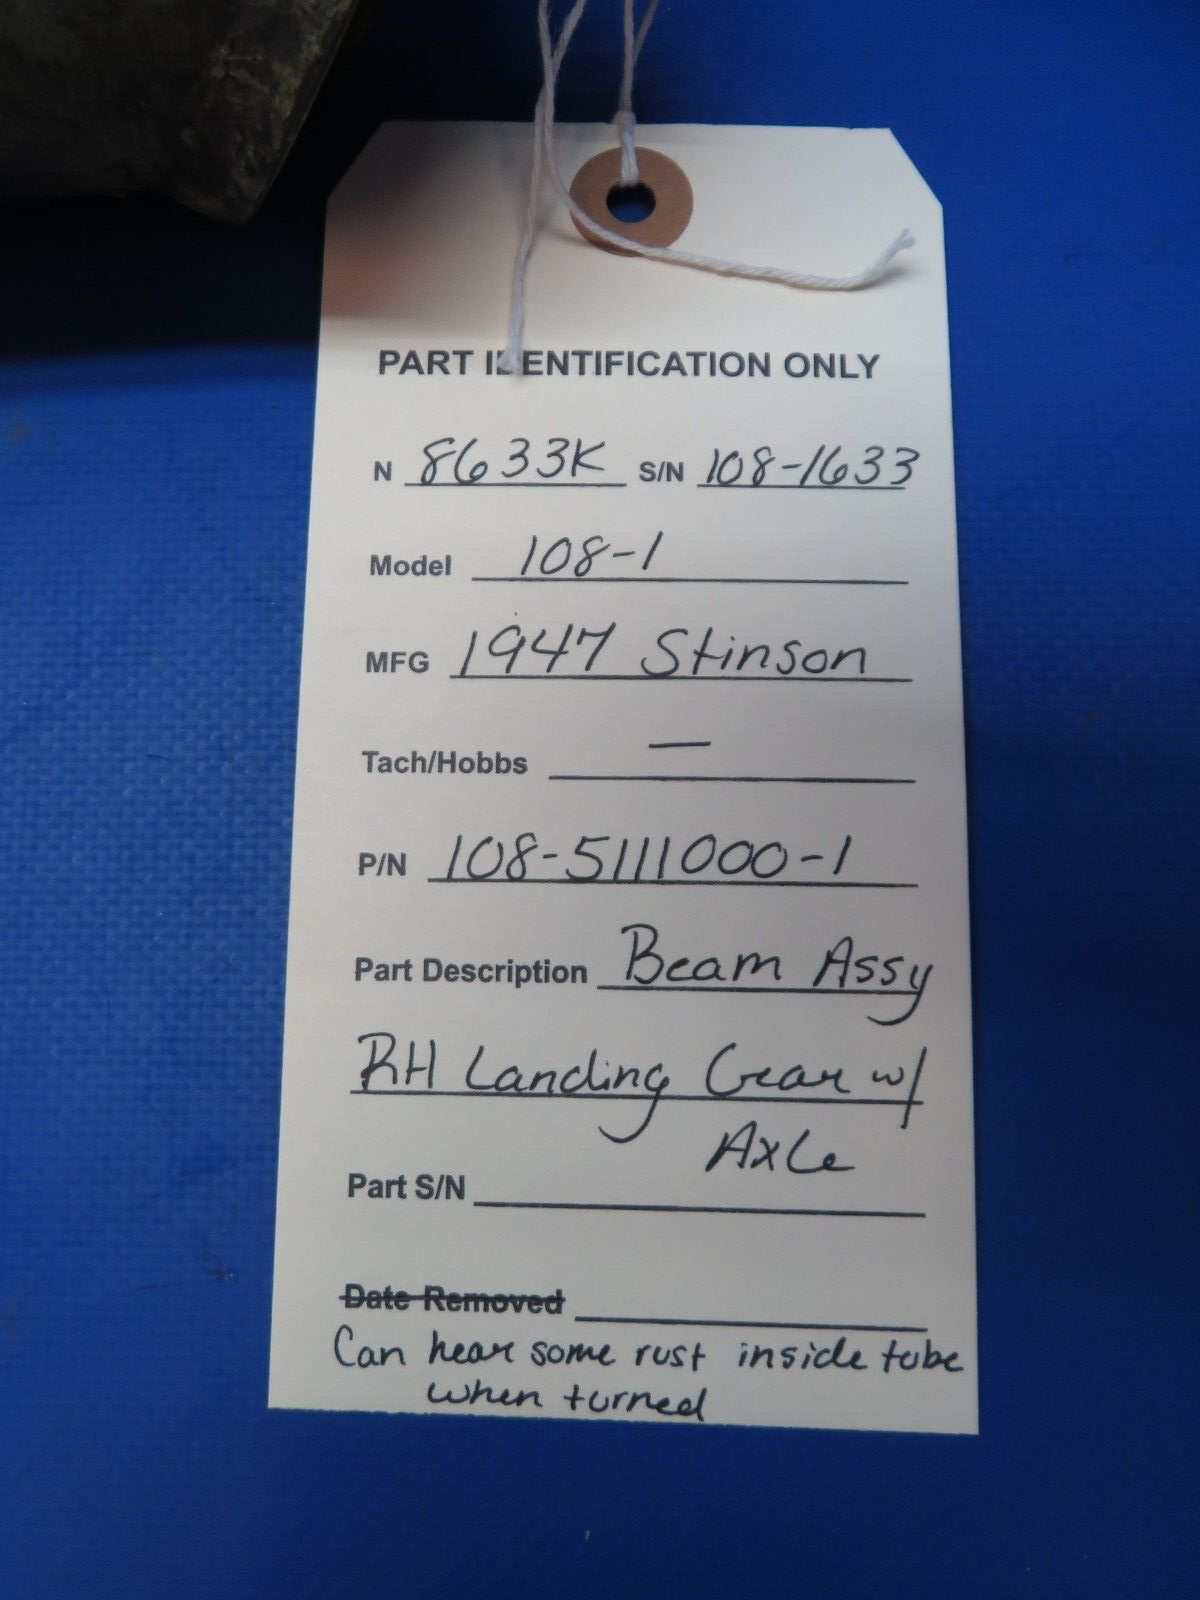 PART IDENTIFICATION ONLY
N 8633K S/N 108-1633
Model 108-1
MFG 1947 Stinson
Tach/Hobbs —
P/N 108-5111000-1
Part Description Beam Assy
RH Landing Gear w/
Axle
Part S/N
Date Removed
Can hear some rust inside tube
when turned